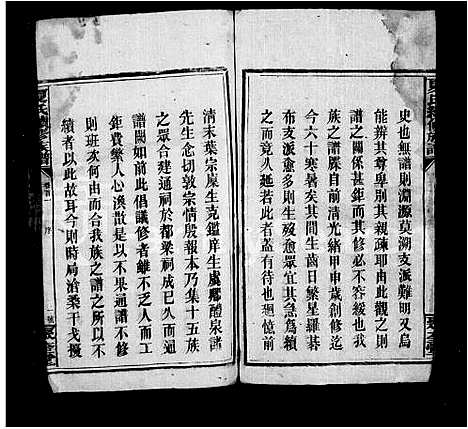 史也無譜則淵源莫溯支派難明又烏
能辨其尊卑別其親疎耶由此觀之則
譜之關係甚鉅而其修不容緩也我
族之譜屢自前清光緒甲申歲創修迄
今六十寒暑矣其間生齒日繁星羅碁
布支派愈多則生歿愈眾宜其急爲續
之而竟久延若此者蓋有待也迴憶前
清末葉宗廩生克鑑庠生虞鄉醴泉諸
先生念切敦宗情殷報本乃合十五族
之眾合建通祠於都梁祠成已久而通
譜闕如前此倡議修者雖不乏人而工
鉅費繁人心渙散是以不果通譜不修
則班次何由而合我族之譜之所以不
續者以此故耳今則時局治棻干戈擾
序